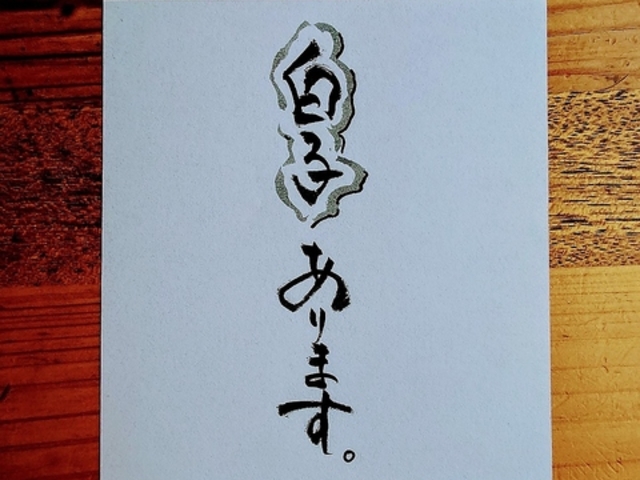 白子あります。